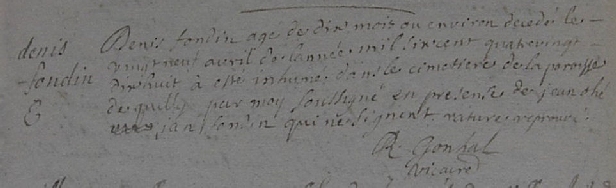 denis
fondin
Denis fondin age de dix mois ou environ decedé le
vingt neuf avril de lannée mil six cent quatrevingt
dixhuit à esté inhumé dans le cimetiere de la paroisse
de quilly par moy soussigné en presense de jean
jan fondin qui ne signent rature reprouvé.
R.
vicaire